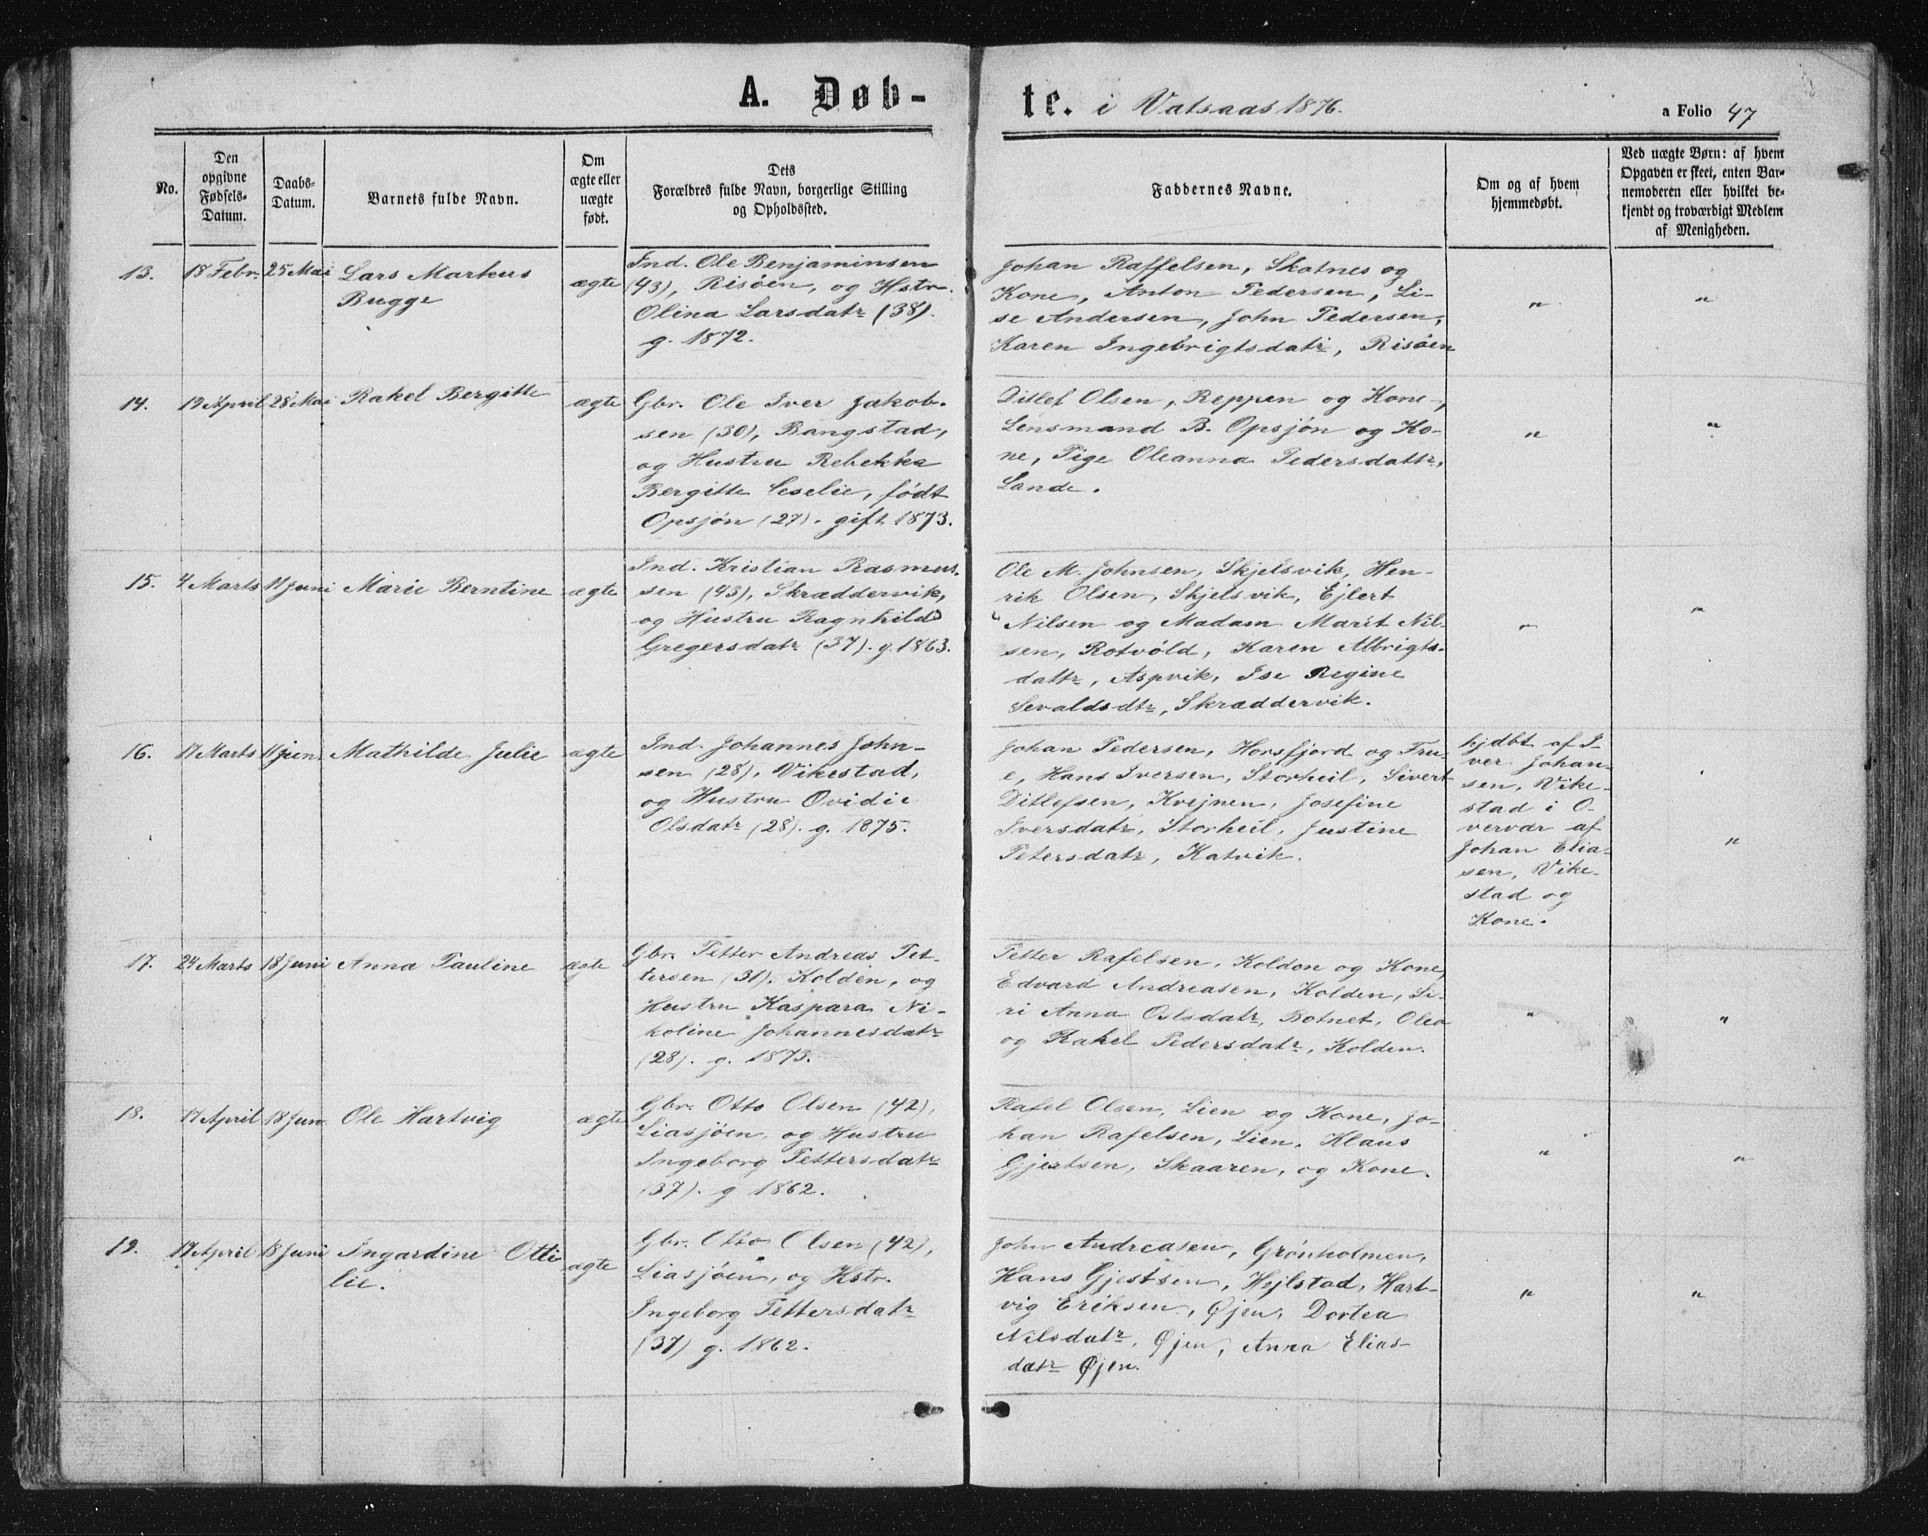 A. Døb-
te. i Vatsaas 1876.
a Folio 47
No.
Den
opgivne
Fødsels-
Datum.
Daabs-
Datum.
Barnets fulde Navn.
Om
ægte eller
uægte
født.
Dets
Forældres fulde Navn, borgerlige Stilling
og Opholdssted.
Faddernes Navne.
Om og af hvem
hjemmedøbt.
Ved uægte Børn: af hvem
Opgaven er skeet, enten Bar-
nemoderen eller hvilket be-
kjendt og troværdigt Medlem
af Menigheden.
13.
18 Febr.
25 Mai
Lars Markus
Bugge
ægte
Ind. Ole Benjaminsen
(43), Risøen, og Hstr.
Olina Larsdatr (38).
g. 1872.
Johan Raffelsen, Skotnes og
Kone, Anton Pedersen, Li-
se Andersen, John Pedersen,
Karen Ingebrigtsdatr, Risøen
"
"
14.
19 April
28 Mai
Rakel Bergitte
ægte
Gbr. Ole Iver Jakob-
sen (30), Bangstad,
og Hustru Rebekka
Bergitte Ceselie, født
Opsjøn (27). gift 1873.
Ditlef Olsen, Reppen og Kone,
Lensmand B. Opsjøn og Ko-
ne, Pige Oleanna Pedersdattr,
Lande.
"
"
15.
4 Marts
11 Juni
Marie Berntine
ægte
Ind. Kristian Rasmus-
sen (43), Skræddervik,
og Hustru Ragnhild
Gregersdatr (37). g. 1863.
Ole M. Johnsen, Skjelsvik, Hen-
rik Olsen, Skjelsvik, Ejlert
Nilsen og Madam Marit Nil-
sen, Rotvold, Karen Albrigts-
dattr, Aspvik, Ise Regine
Sevaldsdtr, Skræddervik.
"
"
16.
17 Marts
11 Juni
Mathilde Julie
ægte
Ind. Johannes John-
sen (28), Vikestad,
og Hustru Ovidie
Olsdatr (28). g. 1875.
Johan Pedersen, Horsfjord og Fru-
e, Hans Iversen, Storheil, Sivert
Ditlefsen, Kvejnen, Josefine
Iversdatr, Storheil, Justine
Petersdatr, Katvik.
hjdbt af I-
ver Johan-
sen, Vike-
stad i O-
vervær af
Johan Elia-
sen, Vike-
stad og
Kone.
"
17.
24 Marts
18 Juni
Anna Pauline
ægte
Gbr. Petter Andreas Pet-
tersen (31). Kolden, og
Hustru Kaspara Ni-
koline Johannesdatr
(28). g. 1873.
Petter Rafelsen, Koldon og Kone,
Edvard Andreasen, Kolden, Si-
ri Anna Olsdatr, Botnet, Olea
og Rakel Pedersdatr, Kolden.
"
"
18.
17 April
18 Jun
Ole Hartvig
ægte
Gbr. Otto Olsen (42),
Liasjøen, og Hustru
Ingeborg Pettersdatr
(37). g 1862.
Rafel Olsen, Lien og Kone, Jo-
han Rafelsen, Lien. Klaus
Gjertsen, Skaaren, og Kone.
"
"
19.
17 April
18 Juni
Ingardine Otti
lie.
ægte
Gbr. Otto Olsen (42),
Liasjøen, og Hstr.
Ingeborg Pettersdatr
(37) g. 1862.
John Andreasen, Grønholmen,
Hans Gjertsen, Hejlstad, Hart-
vig Eriksen, Øjen, Dortea
Nilsdatr, Øjen, Anna Elias-
datr Øjen.
"
"